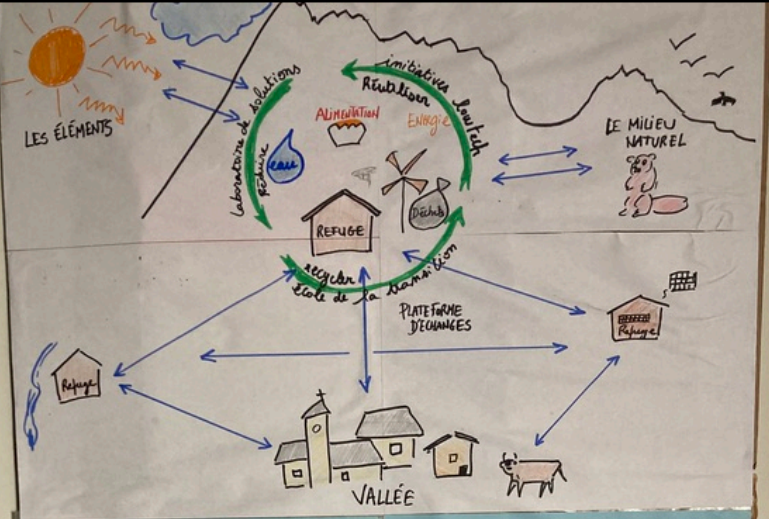 LES ÉLÉMENTS
laboratoire de solutions
Réduire
initiatives lowtech
Réutiliser
ALIMENTATION
ENERGIE
eau
Déchets
REFUGE
LE MILIEU
NATUREL
recycler
école de la transition
PLATEFORME
D'ÉCHANGES
Refuge
Refuge
VALLÉE